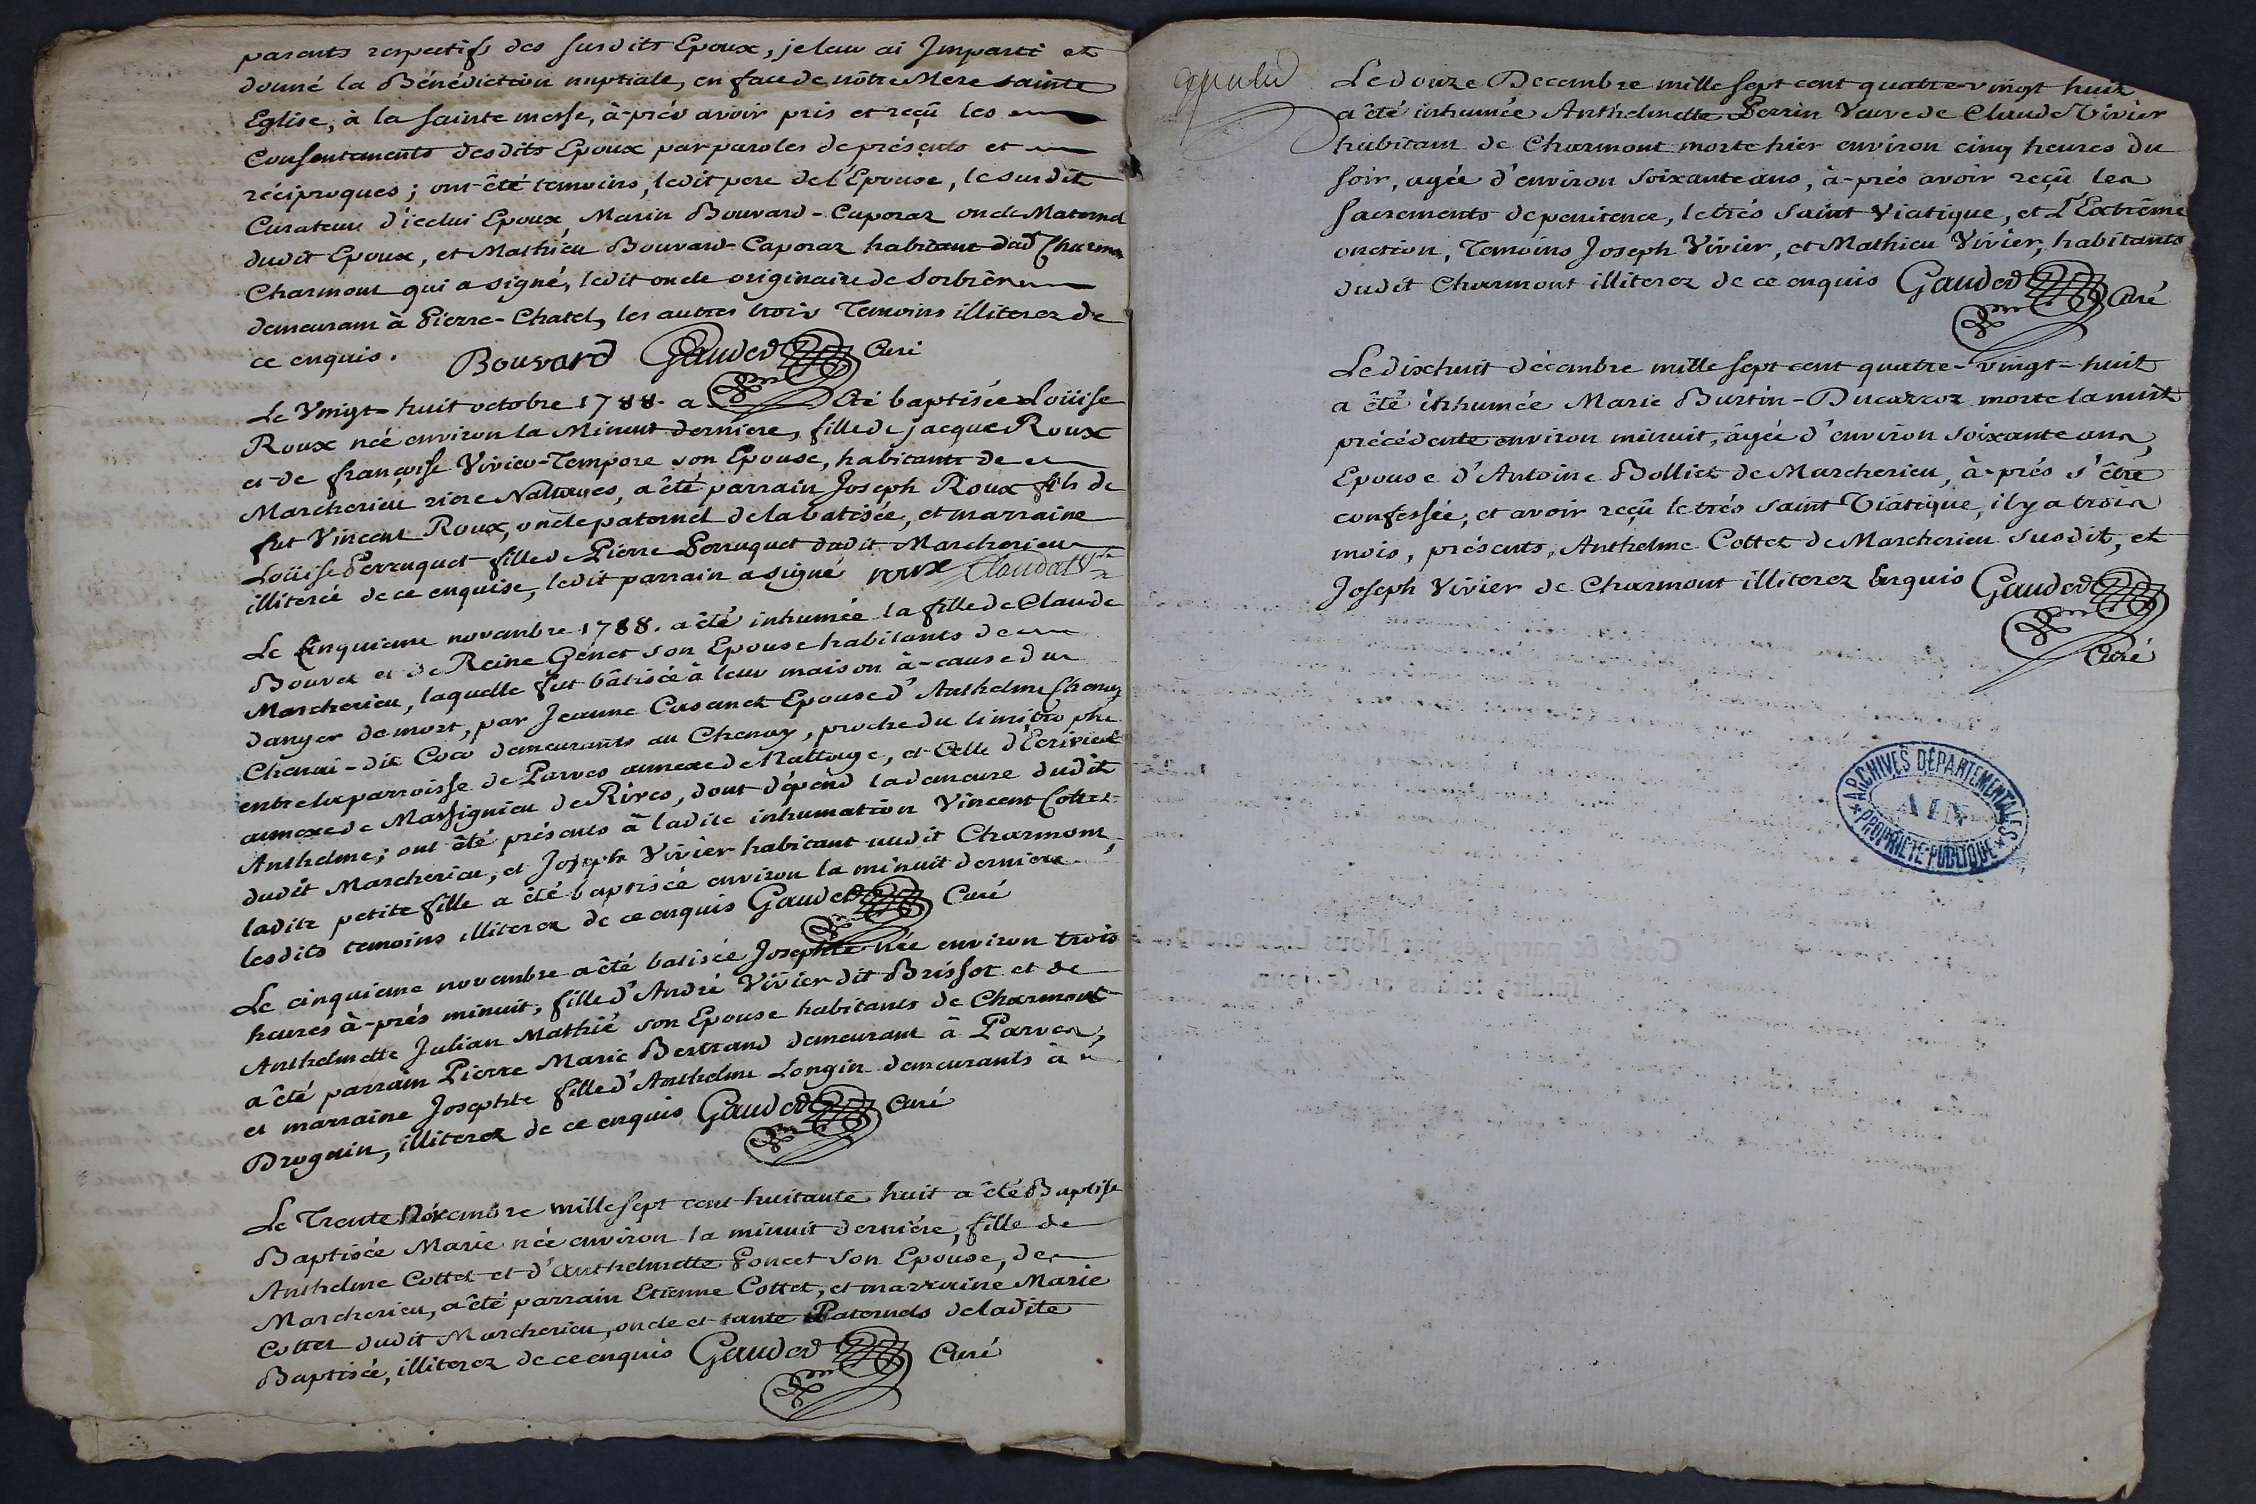 parents respectifs des susdits Epoux, je leur ai Imparti et
donné la Bénédiction nuptiale, en face de nôtre Mere sainte
Eglise, à la sainte messe, à-prés avoir pris et reçû les
Consentements desdits Epoux par paroles de présents et
réciproques ; ont été temoins, ledit pere de l'Epouse, le susdit
Curateur d'icelui Epoux Marin Bouvard-Caporaz oncle Maternel
dudit Epoux, et Mathieu Bouvard-Caporaz habitant dud
Charmont qui a signé, ledit oncle originaire de Sorbier
demeurant à Pierre-Chatel, les autres trois Temoins illiterez de
ce enquis. Bouvard Gauded Curé
Le Vingt-huit octobre 1788. a été baptisée Loüise
Roux née environ la Minuit derniere, fille de jacque Roux
et de françoise Vivier-Tempore son Epouse, habitants de
Marcherieu riere Nattages, a été parrain Joseph Roux fils de
fut Vincent Roux, oncle paternel de la batisée, et marraine
Loüise Perruquet fille de Pierre Perruquet dudit Marcherieu
illiterée de ce enquise, ledit parrain a signé roux
Le Cinquieme novembre 1788. a été inhumée la fille de Claude
Bouvet et de Reine Genet son Epouse habitants de
Marcherieu, laquelle fut bâtisée à leur maison à-cause du
danger de mort, par Jeanne Casanet Epouse d'Anthelme Chenay
Chenai-dit Coco demeurants au Chenay, proche du limitrophe
entre la parroisse de Parves annexe de Nattage, et Celle d'Ecrivieu
annexe de Massignieu de Rives, dont dépend la demeure dudit
Anthelme ; ont été présents à ladite inhumation Vincent Cottet
dudit Marcherieu, et Joseph Vivier habitant audit Charmont,
ladite petite fille a été baptisée environ la minuit derniere
lesdits temoins illiterez de ce enquis Gauded Curé
Le cinquieme novembre a été batisée Josephte née environ trois
heures à-prés minuit, fille d'André Vivier dit Brissot et de
Anthelmette Julian Mathié son Epouse habitants de Charmont
a été parrain Pierre Marie Bertrand demeurant à Parves,
et marraine Josephte fille d'Anthelme Longin demeurants à
Drogain, illiterez de ce enquis Gauded Curé
Le Trente Novembre mille sept cent huitante huit a été Baptise
Baptisée Marie née environ la minuit derniére, fille de
Anthelme Cottet et d'anthelmette Poncet son Epouse, de
Marcherieu, a été parrain Etienne Cottet, et marraine Marie
Cottet dudit Marcherieu, oncle et tante Paternels de ladite
Baptisée, illiterez de ce enquis Gauded Curé
Le douze Decembre mille sept cent quatre-vingt huit
a été inhumée Anthelmette Perrin Veuve de Claude Vivier
habitant de Charmont morte hier environ cinq heures du
soir, agée d'environ soixante ans, à-prés avoir reçû les
sacrements de penitence, le trés saint Viatique, et l'Extrême
onction, Temoins Joseph Vivier, et Mathieu Vivier, habitants
dudit Charmont illiterez de ce enquis Gauded Curé
Le dixhuit décembre mille sept cent quatre-vingt-huit
a été inhumée Marie Burtin-Ducarroz morte la nuit
précédente environ minuit, âgée d'environ soixante ans,
Epouse d'Antoine Bolliet de Marcherieu, à-prés s'être
confessée, et avoir reçû le trés saint Viatique, il y a trois
mois, présents, Anthelme Cottet de Marcherieu susdit, et
Joseph Vivier de Charmont illiterez Enquis Gauded
Curé
ARCHIVES DÉPARTEMENTALES
AIN
PROPRIÉTÉ PUBLIQUE